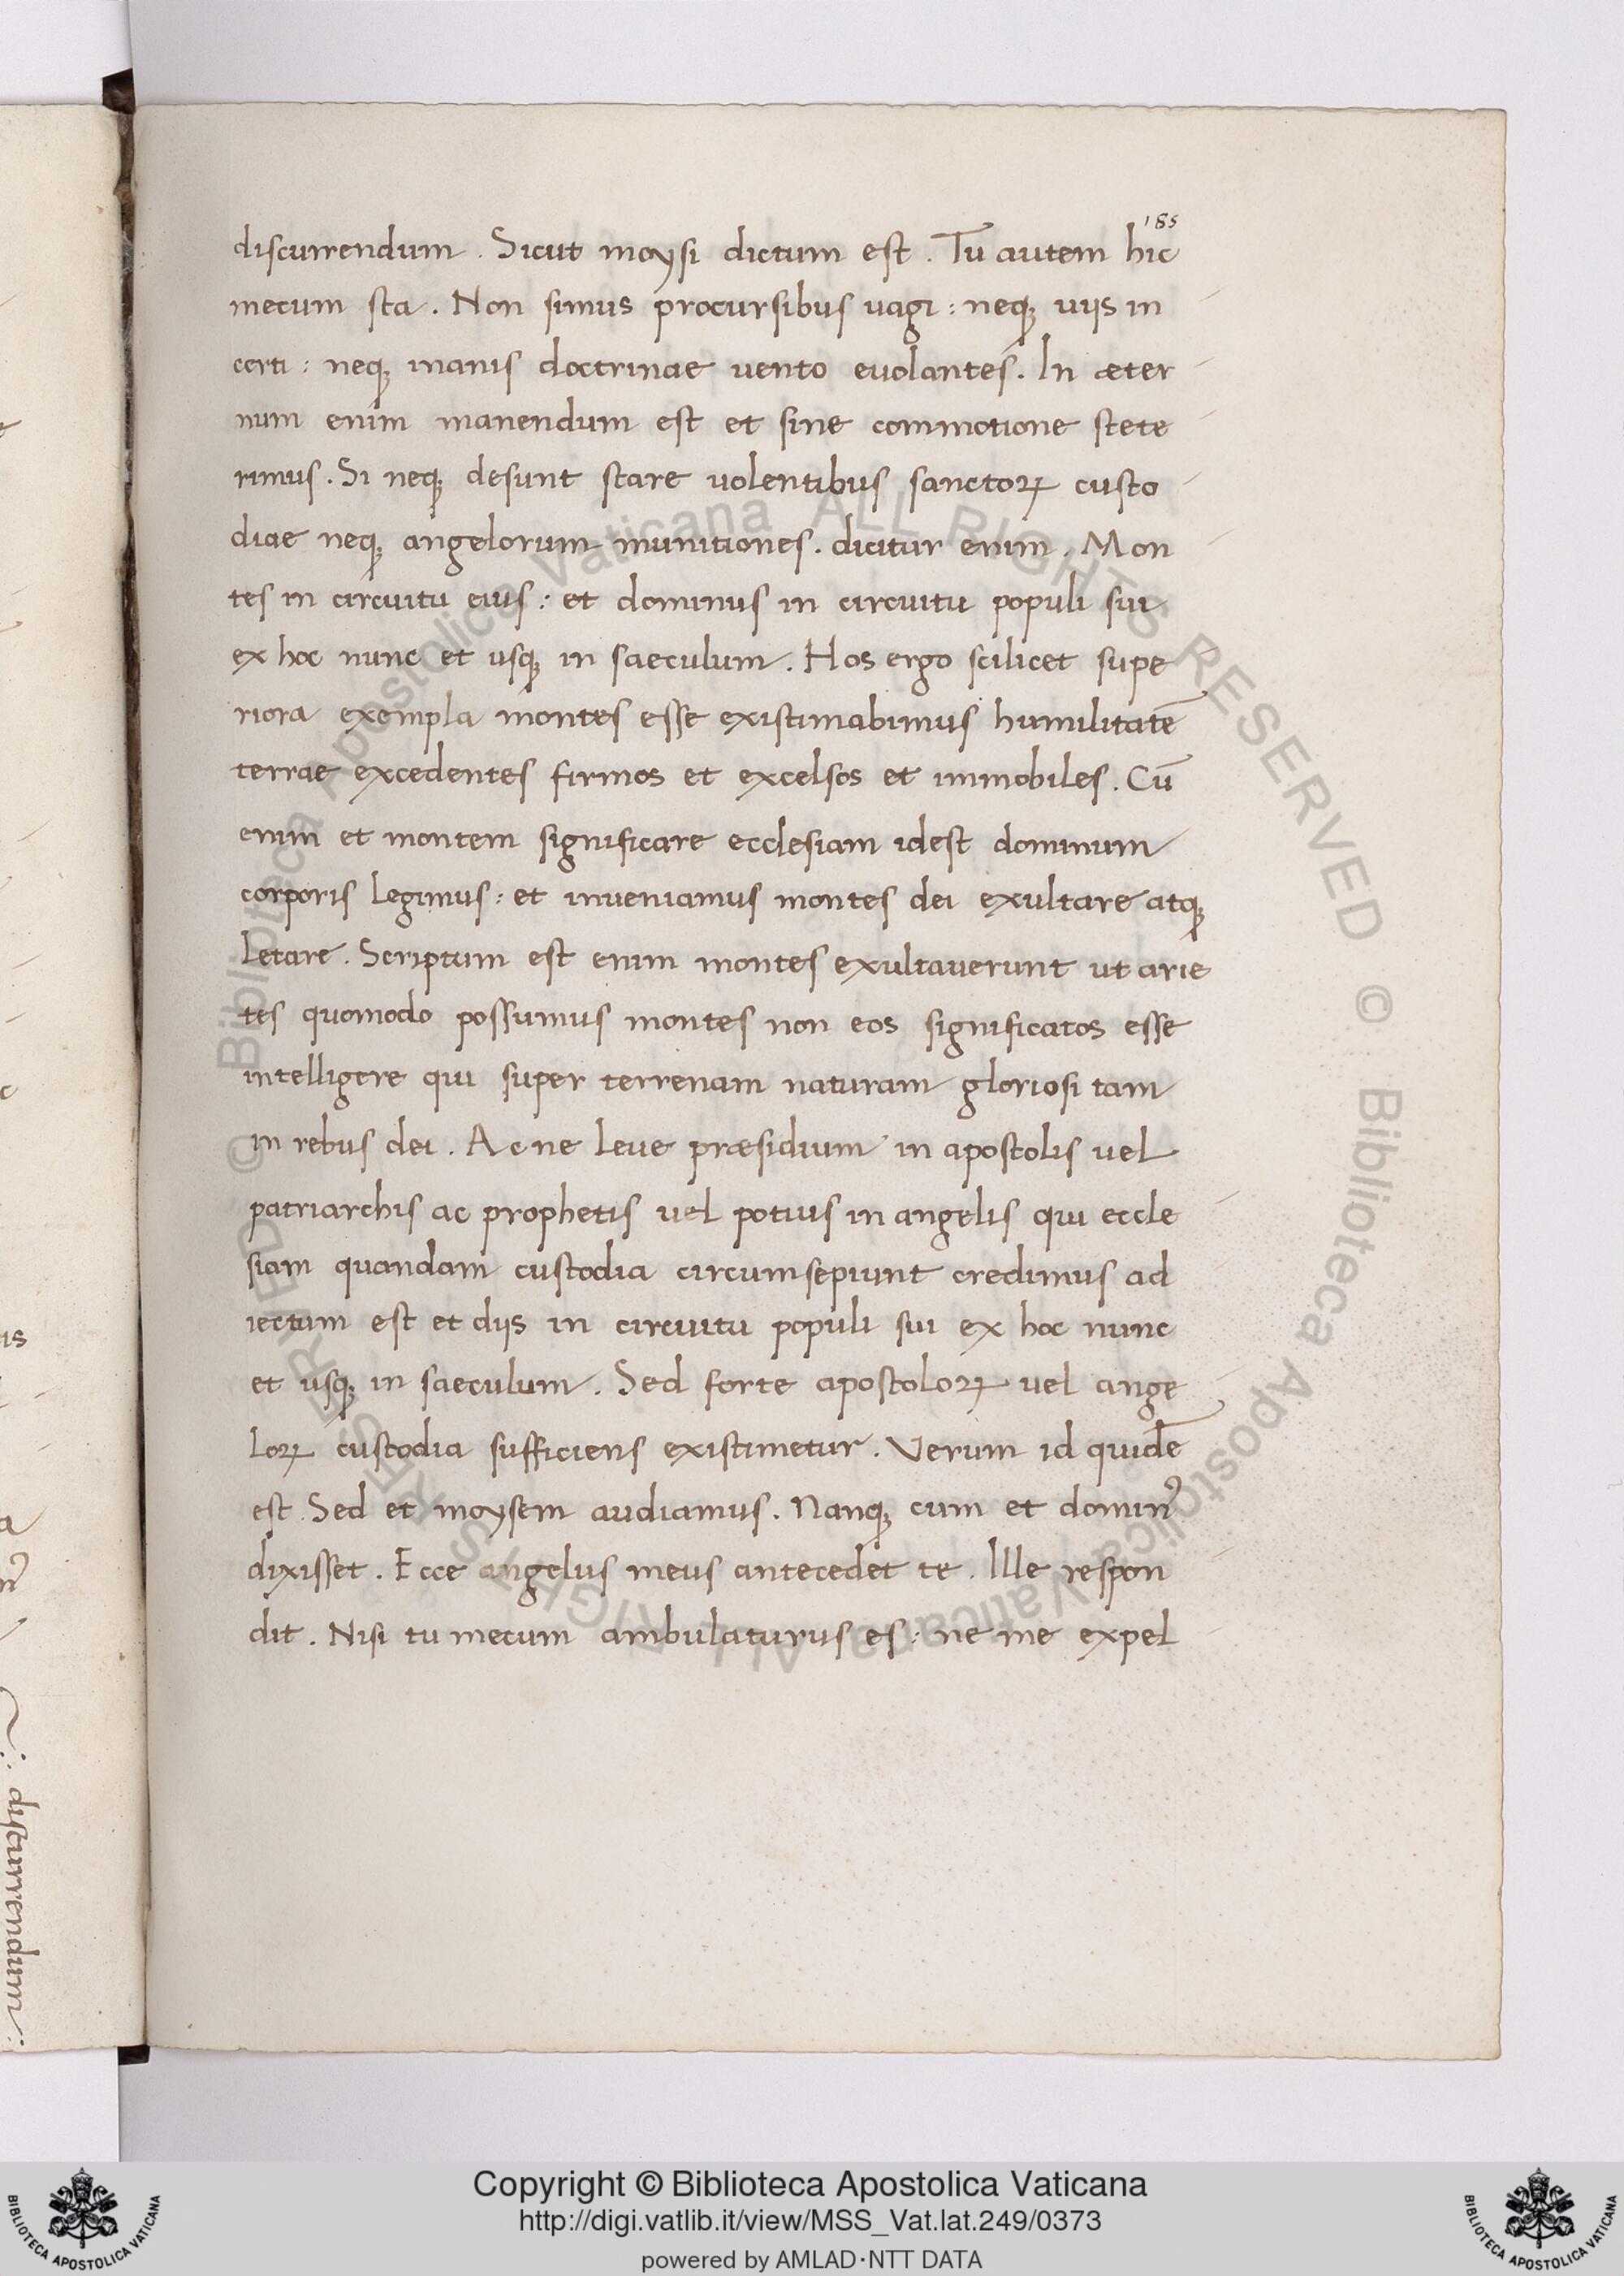 185
discurrendum. Sicut moysi dictum est. Tu autem hic
mecum sta. Non simus procursibus vagi: neq; viis in
certi: neq; inanis doctrinae vento evolantes. In æter
num enim manendum est et sine commotione stete
rimus. Si neq; desunt stare volentibus sanctoꝝ custo
diae neq; angelorum munitiones. dicitur enim. Mon
tes in circuitu eius: et dominus in circuitu populi sui
ex hoc nunc et usq; in saeculum. Hos ergo scilicet supe
riora exempla montes esse existimabimus humilitatē
terrae excedentes firmos et excelsos et immobiles. Cū
enim et montem significare ecclesiam idest dominum
corporis legimus: et inveniamus montes dei exultare atq;
letare. Scriptum est enim montes exultaverunt ut arie
tes quomodo possumus montes non eos significatos esse
intelligere qui super terrenam naturam gloriosi tam
in rebus dei. Ac ne leve præsidium in apostolis vel
patriarchis ac prophetis vel potius in angelis qui eccle
siam quandam custodia circumsepiunt credimus ad
iectum est et diis in circuitu populi sui ex hoc nunc
et usq; in saeculum. Sed forte apostoloꝝ vel ange
loꝝ custodia sufficiens existimetur. Verum id quidē
est Sed et moysem audiamus. Nanq; cum et dominꝰ
dixisset. Ecce angelus meus antecedet te. Ille respon
dit. Nisi tu mecum ambulaturus es: ne me expel
discurrendum:
© Biblioteca Apostolica Vaticana ALL RIGHTS RESERVED © Biblioteca Apostolica Vaticana ALL RIGHTS RESERVED
Copyright © Biblioteca Apostolica Vaticana
http://digi.vatlib.it/view/MSS_Vat.lat.249/0373
powered by AMLAD·NTT DATA
BIBLIOTECA APOSTOLICA VATICANA
BIBLIOTECA APOSTOLICA VATICANA